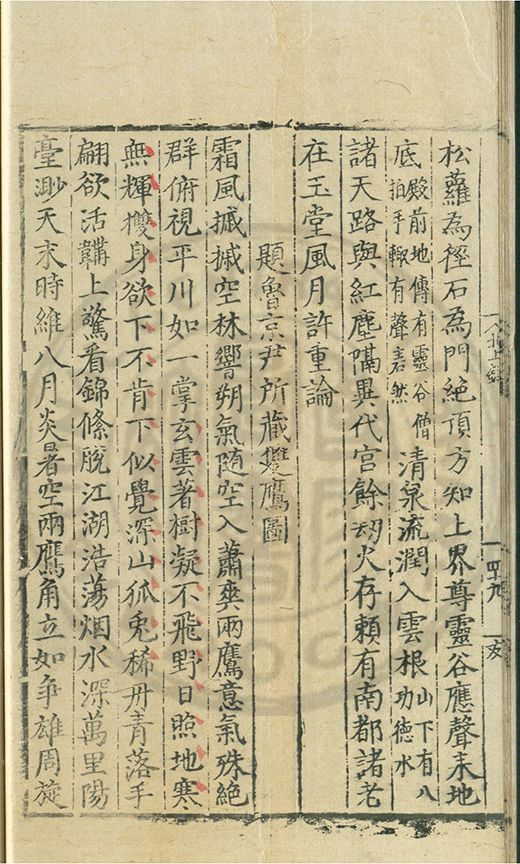 松蘿為徑石為門絶頂方知上界尊靈谷應聲来地
底殿前地傳有靈谷僧拍手輙有聲砉然清泉流潤入雲根山下有八功德水
諸天路與紅塵隔異代宫餘刼火存頼有南都諸老
在玉堂風月許重論
題魯京尹所藏雙鷹圖
霜風摵摵空林響朔氣随空入蕭爽兩鷹意氣殊絶
群俯視平川如一掌玄雲著樹凝不飛野日照地寒
無輝攫身欲下不肯下似覺深山狐兎稀丹青落手
翩欲活韝上驚看錦絛脱江湖浩蕩烟水深萬里陽
臺渺天末時維八月炎暑空兩鷹角立如爭雄周旋